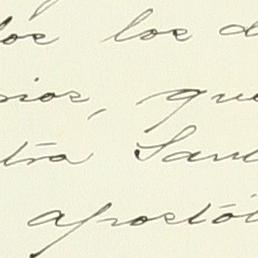 los los d
pios, que
tra San
apostó